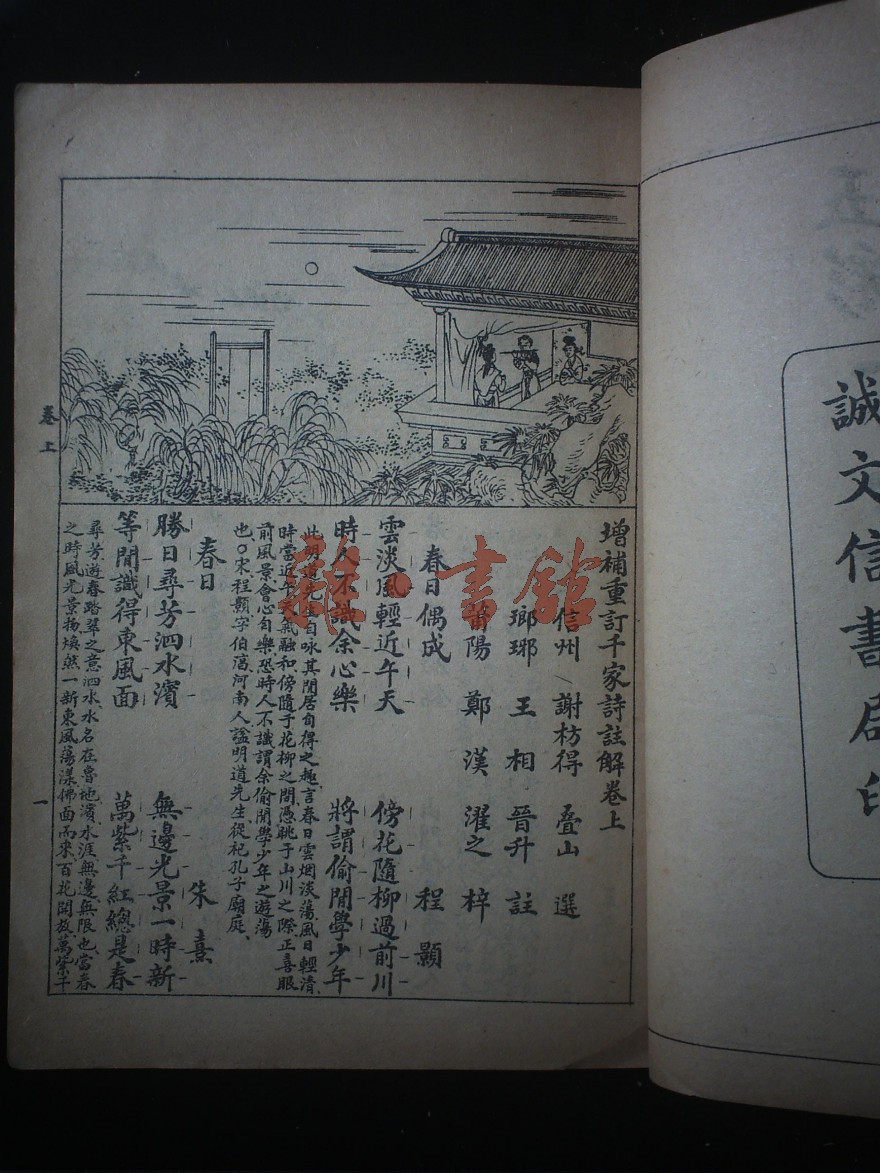 誠文信書局印
增補重訂千家詩註解卷上
信州 謝枋得 叠山 選
瑯琊 王相 晉升 註
莆陽 鄭漢 濯之 梓
春日偶成 程顥
雲淡風輕近午天 傍花隨柳過前川
時人不識余心樂 將謂偷閒學少年
此明道先生自咏其閒居自得之趣言春日雲烟淡蕩風日輕清
時當近午天氣融和傍隨于花柳之間憑眺于山川之際正喜眼
前風景會心自樂恐時人不識謂余偷閒學少年之遊蕩
也〇宋程顥字伯淳河南人謚明道先生從祀孔子廟庭
春日 朱熹
勝日尋芳泗水濱 無邊光景一時新
等閒識得東風面 萬紫千紅總是春
尋芳遊春踏翠之意泗水水名在魯地濱水涯無邊無限也當春
之時風光景物煥然一新東風蕩漾佛面而來百花開放萬紫千
卷上
一
雜·書館